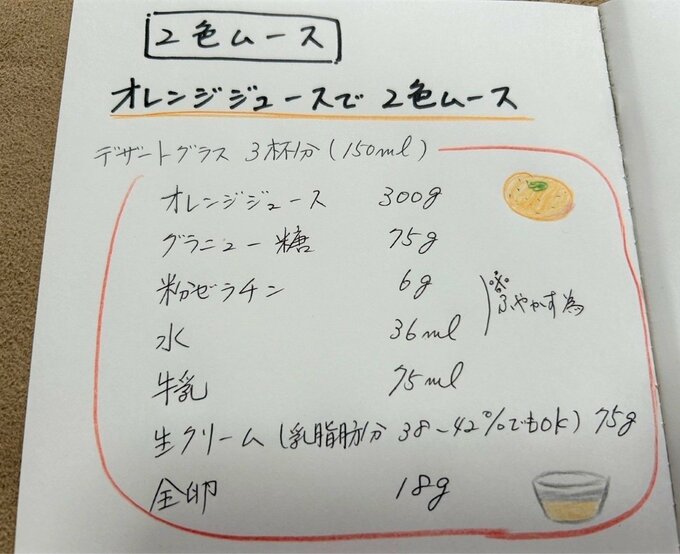 2色ムース
オレンジジュースで 2色ムース
デザートグラス 3杯分 (150ml)
オレンジジュース 300g
グラニュー糖 75g
粉ゼラチン 6g
※ふやかす為
水 36ml
牛乳 75ml
生クリーム (乳脂肪分 38~42%でもOK) 75g
全卵 18g